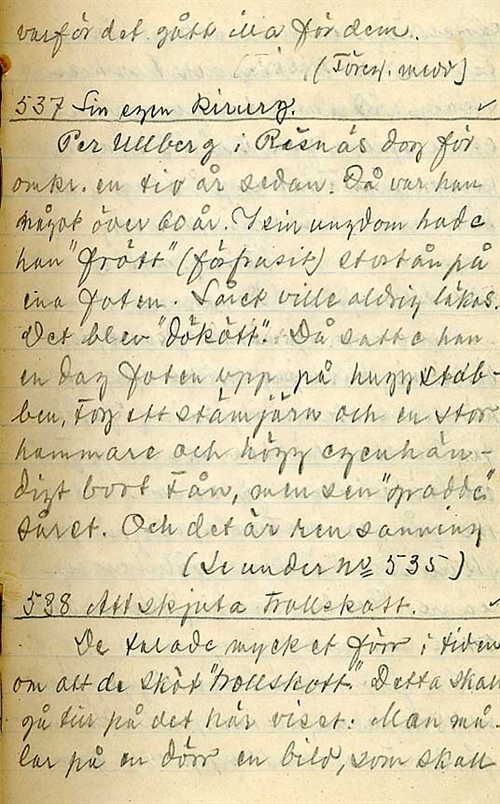 varför det gått illa för dem.
(Föreg. medd)
537 Sin egen kirurg.
Per Ullberg i Resnäs dog för
omkr. en tio år sedan. Då var han
något över 60 år. I sin ungdom hade
han "frött" (förfrusit) stortån på
ena foten. Såret ville aldrig läkas.
Det blev "dökött". Då satte han
en dag foten upp på huggstab-
ben, tog ett stämjärn och en stor
hammare och högg egenhän-
digt bort tån, men sen "gradde"
såret. Och det är ren sanning
(Se under No 535)
538 Att skjuta Trollskott.
De talade mycket förr i tiden
om att de sköt "trollskott." Detta skall
gå till på det här viset: Man må-
lar på en dörr en bild, som skall